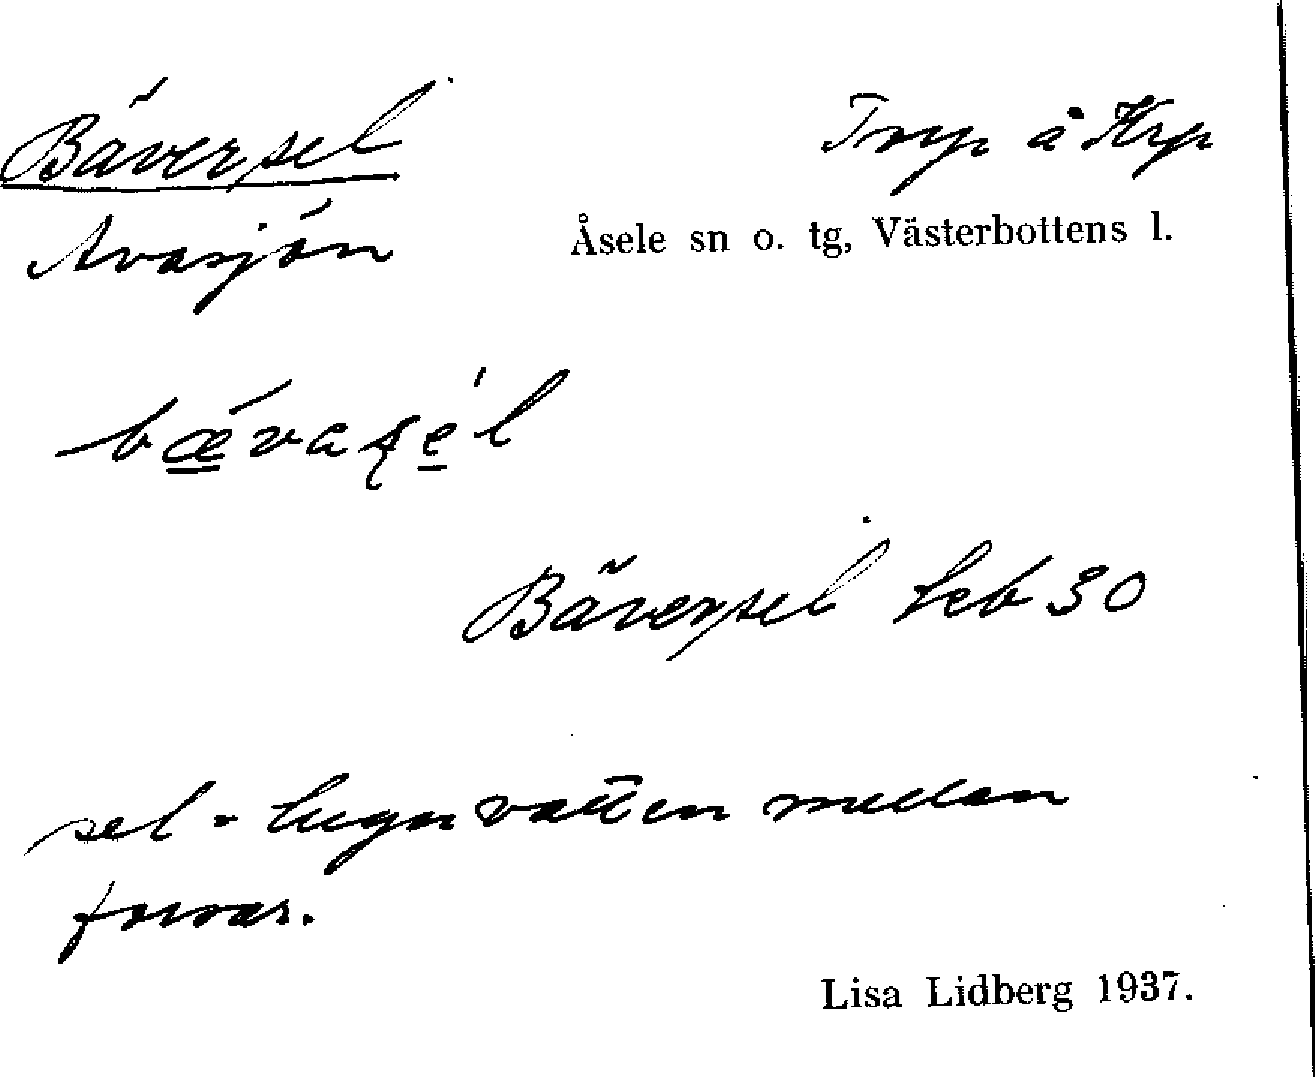 Bäversel
Torp å Krp
Avasjön
Åsele sn o. tg, Västerbottens l.
bǽ̳vaʂe̲̍l
Bäversel Leb 30
sel = lugnvatten mellan
forsar.
Lisa Lidberg 1937.